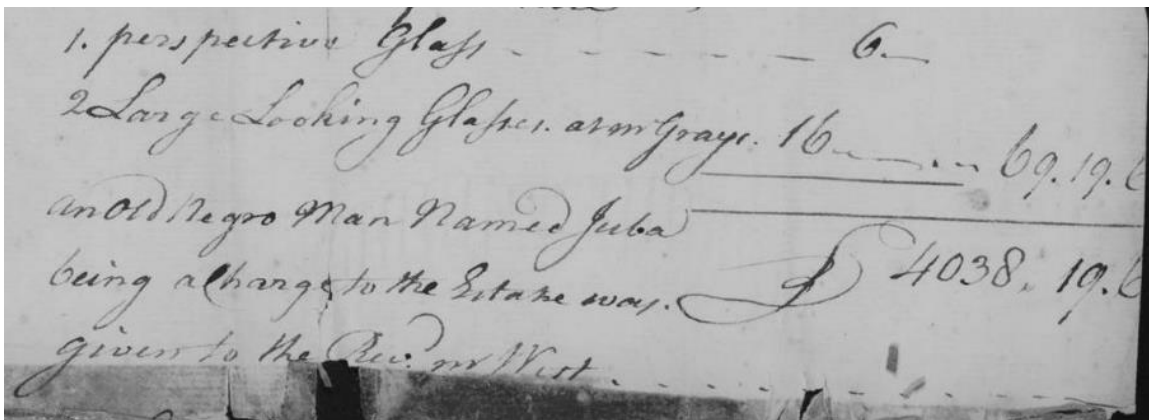 1. perspective Glass - - - - - - 6 —
2 Large Looking Glasses. at mr Grays. 16 — — 69. 19. 6
an Old Negro Man Named Juba
being a Charge to the Estate was. £ 4038. 19. 6
given to the Revd. mr West. - - - - - -